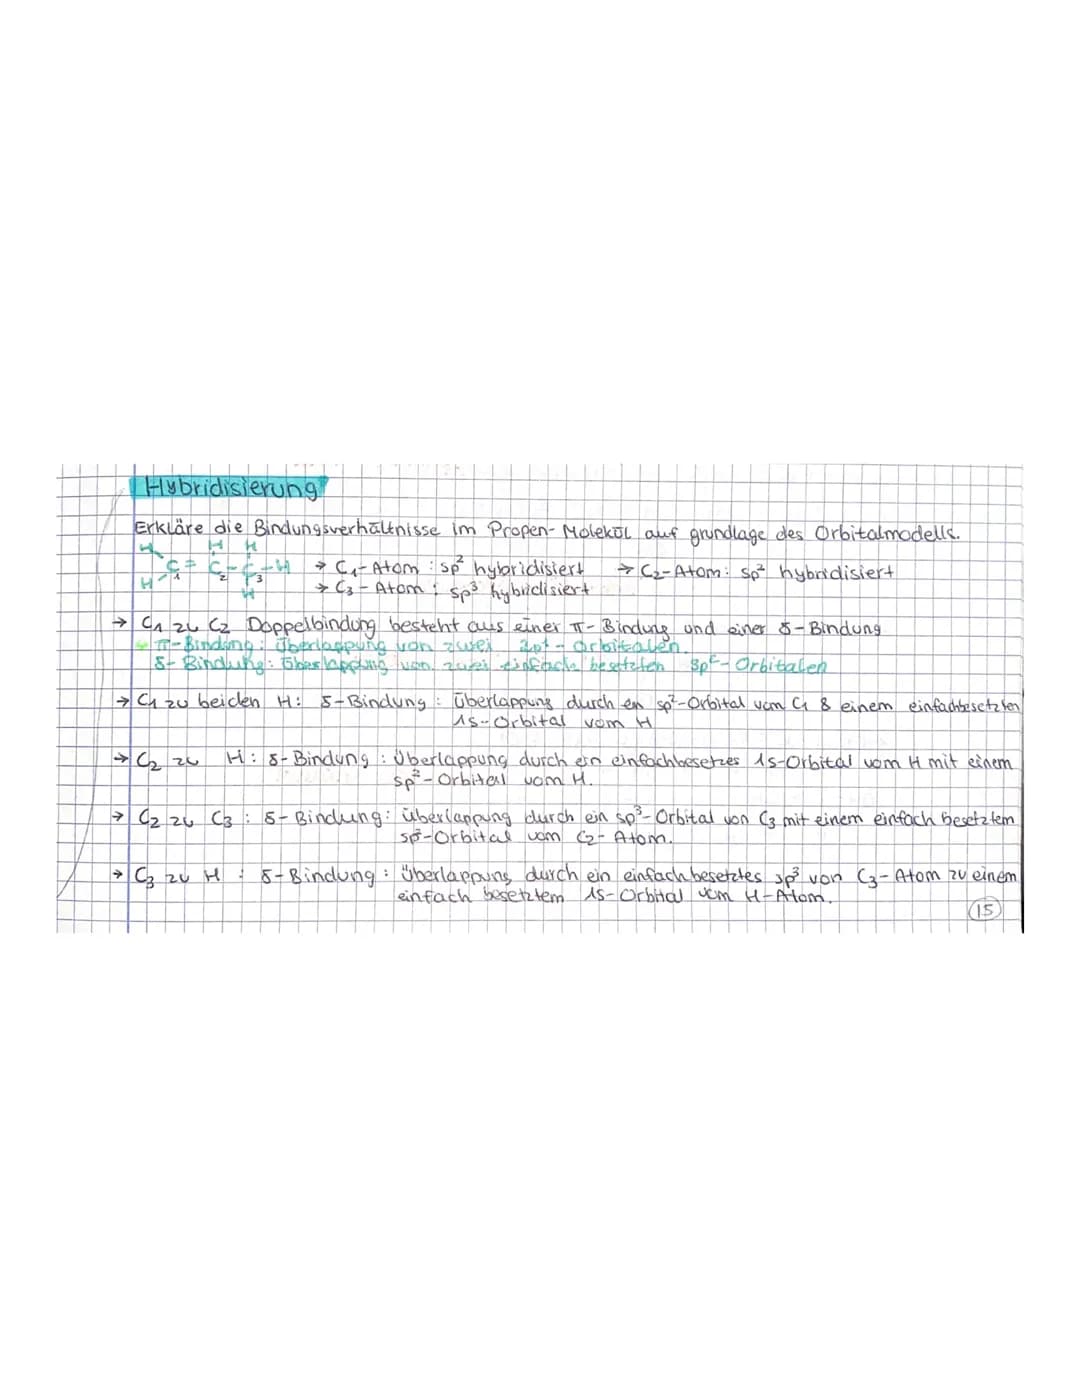 Hybridisierung
Erkläre die Bindungsverhältnisse im Propen-Molekül auf grundlage des Orbitalmodells.
H H H
C = C - C - H → C1-Atom : sp² hybridisiert → C2-Atom: sp² hybridisiert
H 1 2 3 → C3-Atom : sp³ hybridisiert
H
→ C1 zu C2 Doppelbindung besteht aus einer π-Bindung und einer δ-Bindung
π-Bindung: Überlappung von zwei orbitalen.
δ-Bindung: Überlappung von zwei einfach besetzten sp²-Orbitalen
→ C1 zu beiden H: δ-Bindung : Überlappung durch ein sp²-Orbital vom C1 & einem einfachbesetzten
1s-Orbital vom H
→ C2 zu H: δ-Bindung : Überlappung durch ein einfachbesetzes 1s-Orbital vom H mit einem
sp²-Orbital vom H.
→ C2 zu C3 : δ-Bindung: überlappung durch ein sp³-Orbital von C3 mit einem einfach besetztem
sp²-Orbital vom C2-Atom.
→ C3 zu H : δ-Bindung : Überlappung durch ein einfach besetztes sp³ von C3-Atom zu einem
einfach besetztem 1s-Orbital vom H-Atom.
15